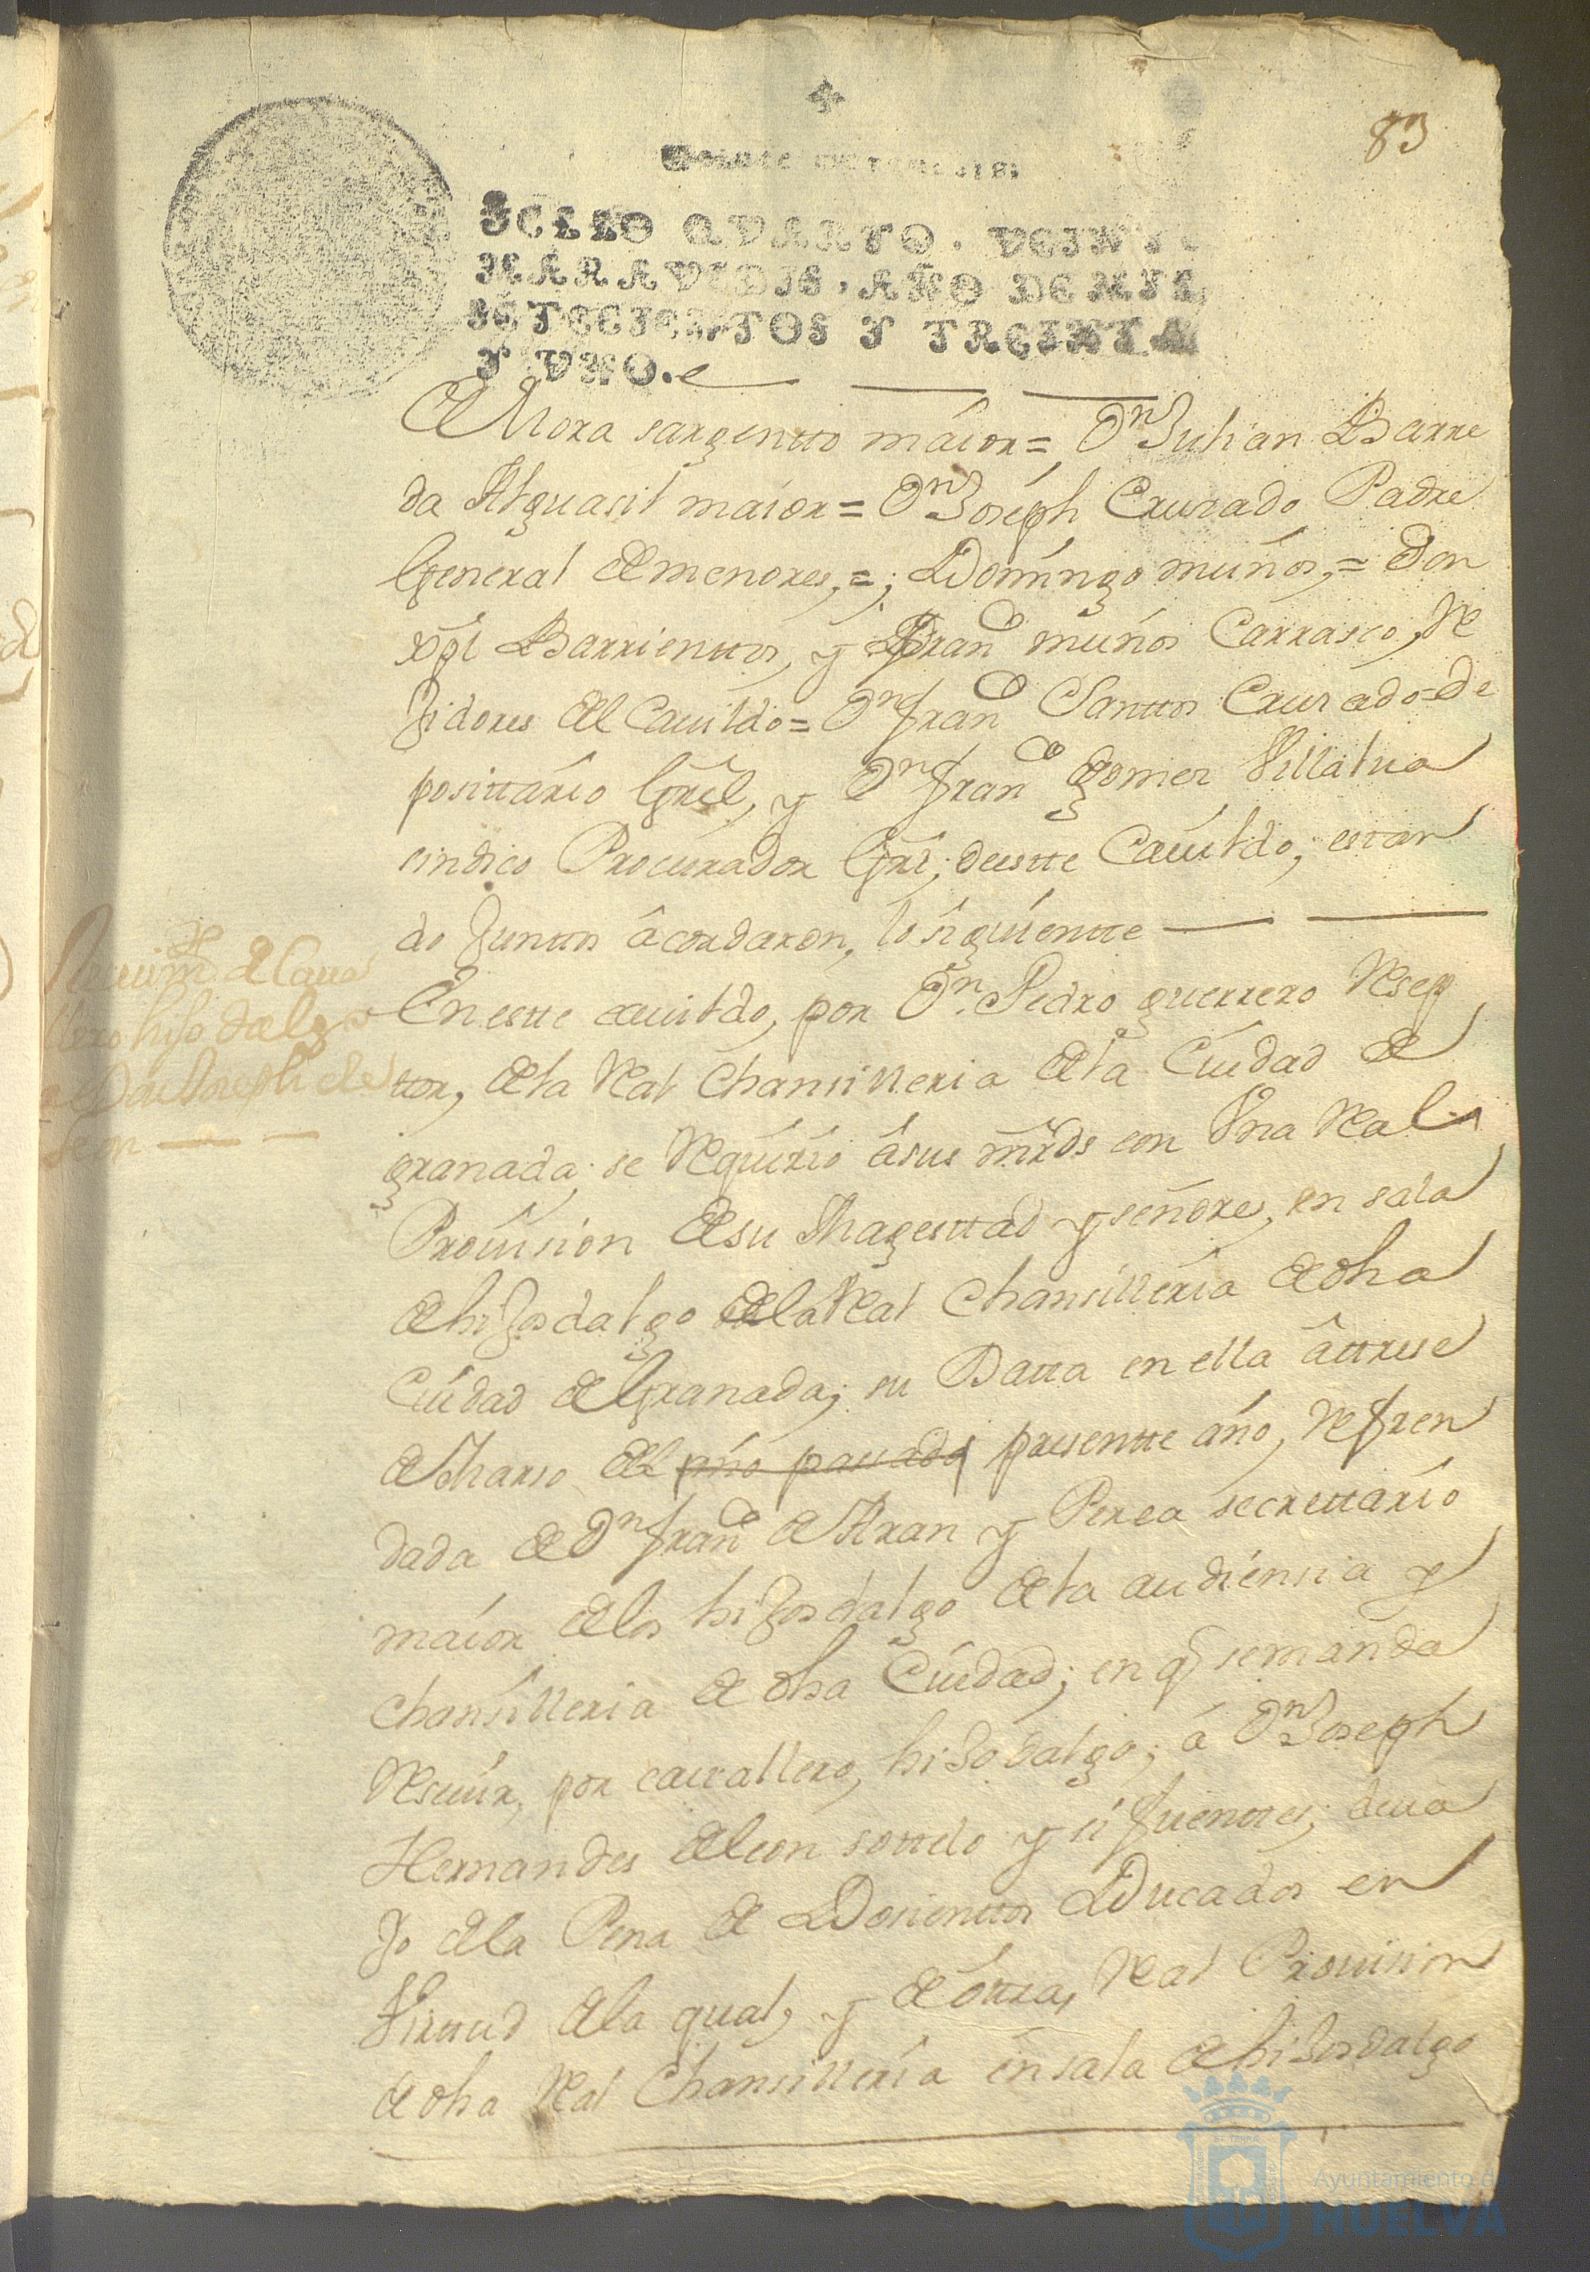 83
SELLO QVARTO. VEINTE
MARAVEDIS, AÑO DE MIL
SETECIENTOS Y TREINTA
Y VNO.
de Mora sargentto máior = Dn Julian Barre
da Alguasil maíor = Dn Joseph Crusado Padre
General de menores, = ; Domíngo múños, = don
xpl Barrienttos, y Franco muños Carrasco, Re
Jidores del Cauildo = Dn Franco Santtos Crusado = De
posittário Grál, y Dn Franco gomes Villalua
cindico Procúrador Grl; deestte Cauíldo; estan
do Junttos âcordaron, lo síguíentte
En estte cauildo, por Dn. Pedro guerrero Resep
ttor, de la Real Chansilleria de la Cíudad de
granada; se Requírío âsus mrds con Vna Real
Prouísion de su Magesttad y señores, en sala
de hiJosdalgo de la Real Chansillería de dha
Cíudad de Granada; su Datta en ella âttrese
de Marso del año passado presentte año, Refren
dada de Dn Franco de Aran y Perea secrettarío
maíor de los hiJosdalgo de la audíensia y
chansílleria de dha Cíudad; en q se manda
Resiuír, por cauallero, hiJodalgo; á Dn Joseph
Hernandes de leon sottelo y sifuenttes; deua
Jo de la Pena de Dosienttos Ducádos en
Virttud de la qual, y de ôttra, Real Prouision
de dha Real Chansillería en sala de hiJosdalgo
Reciuimto de Caua
llero hijo dalgo
de Dn Joseph de
Leon
Ayuntamiento de
HUELVA